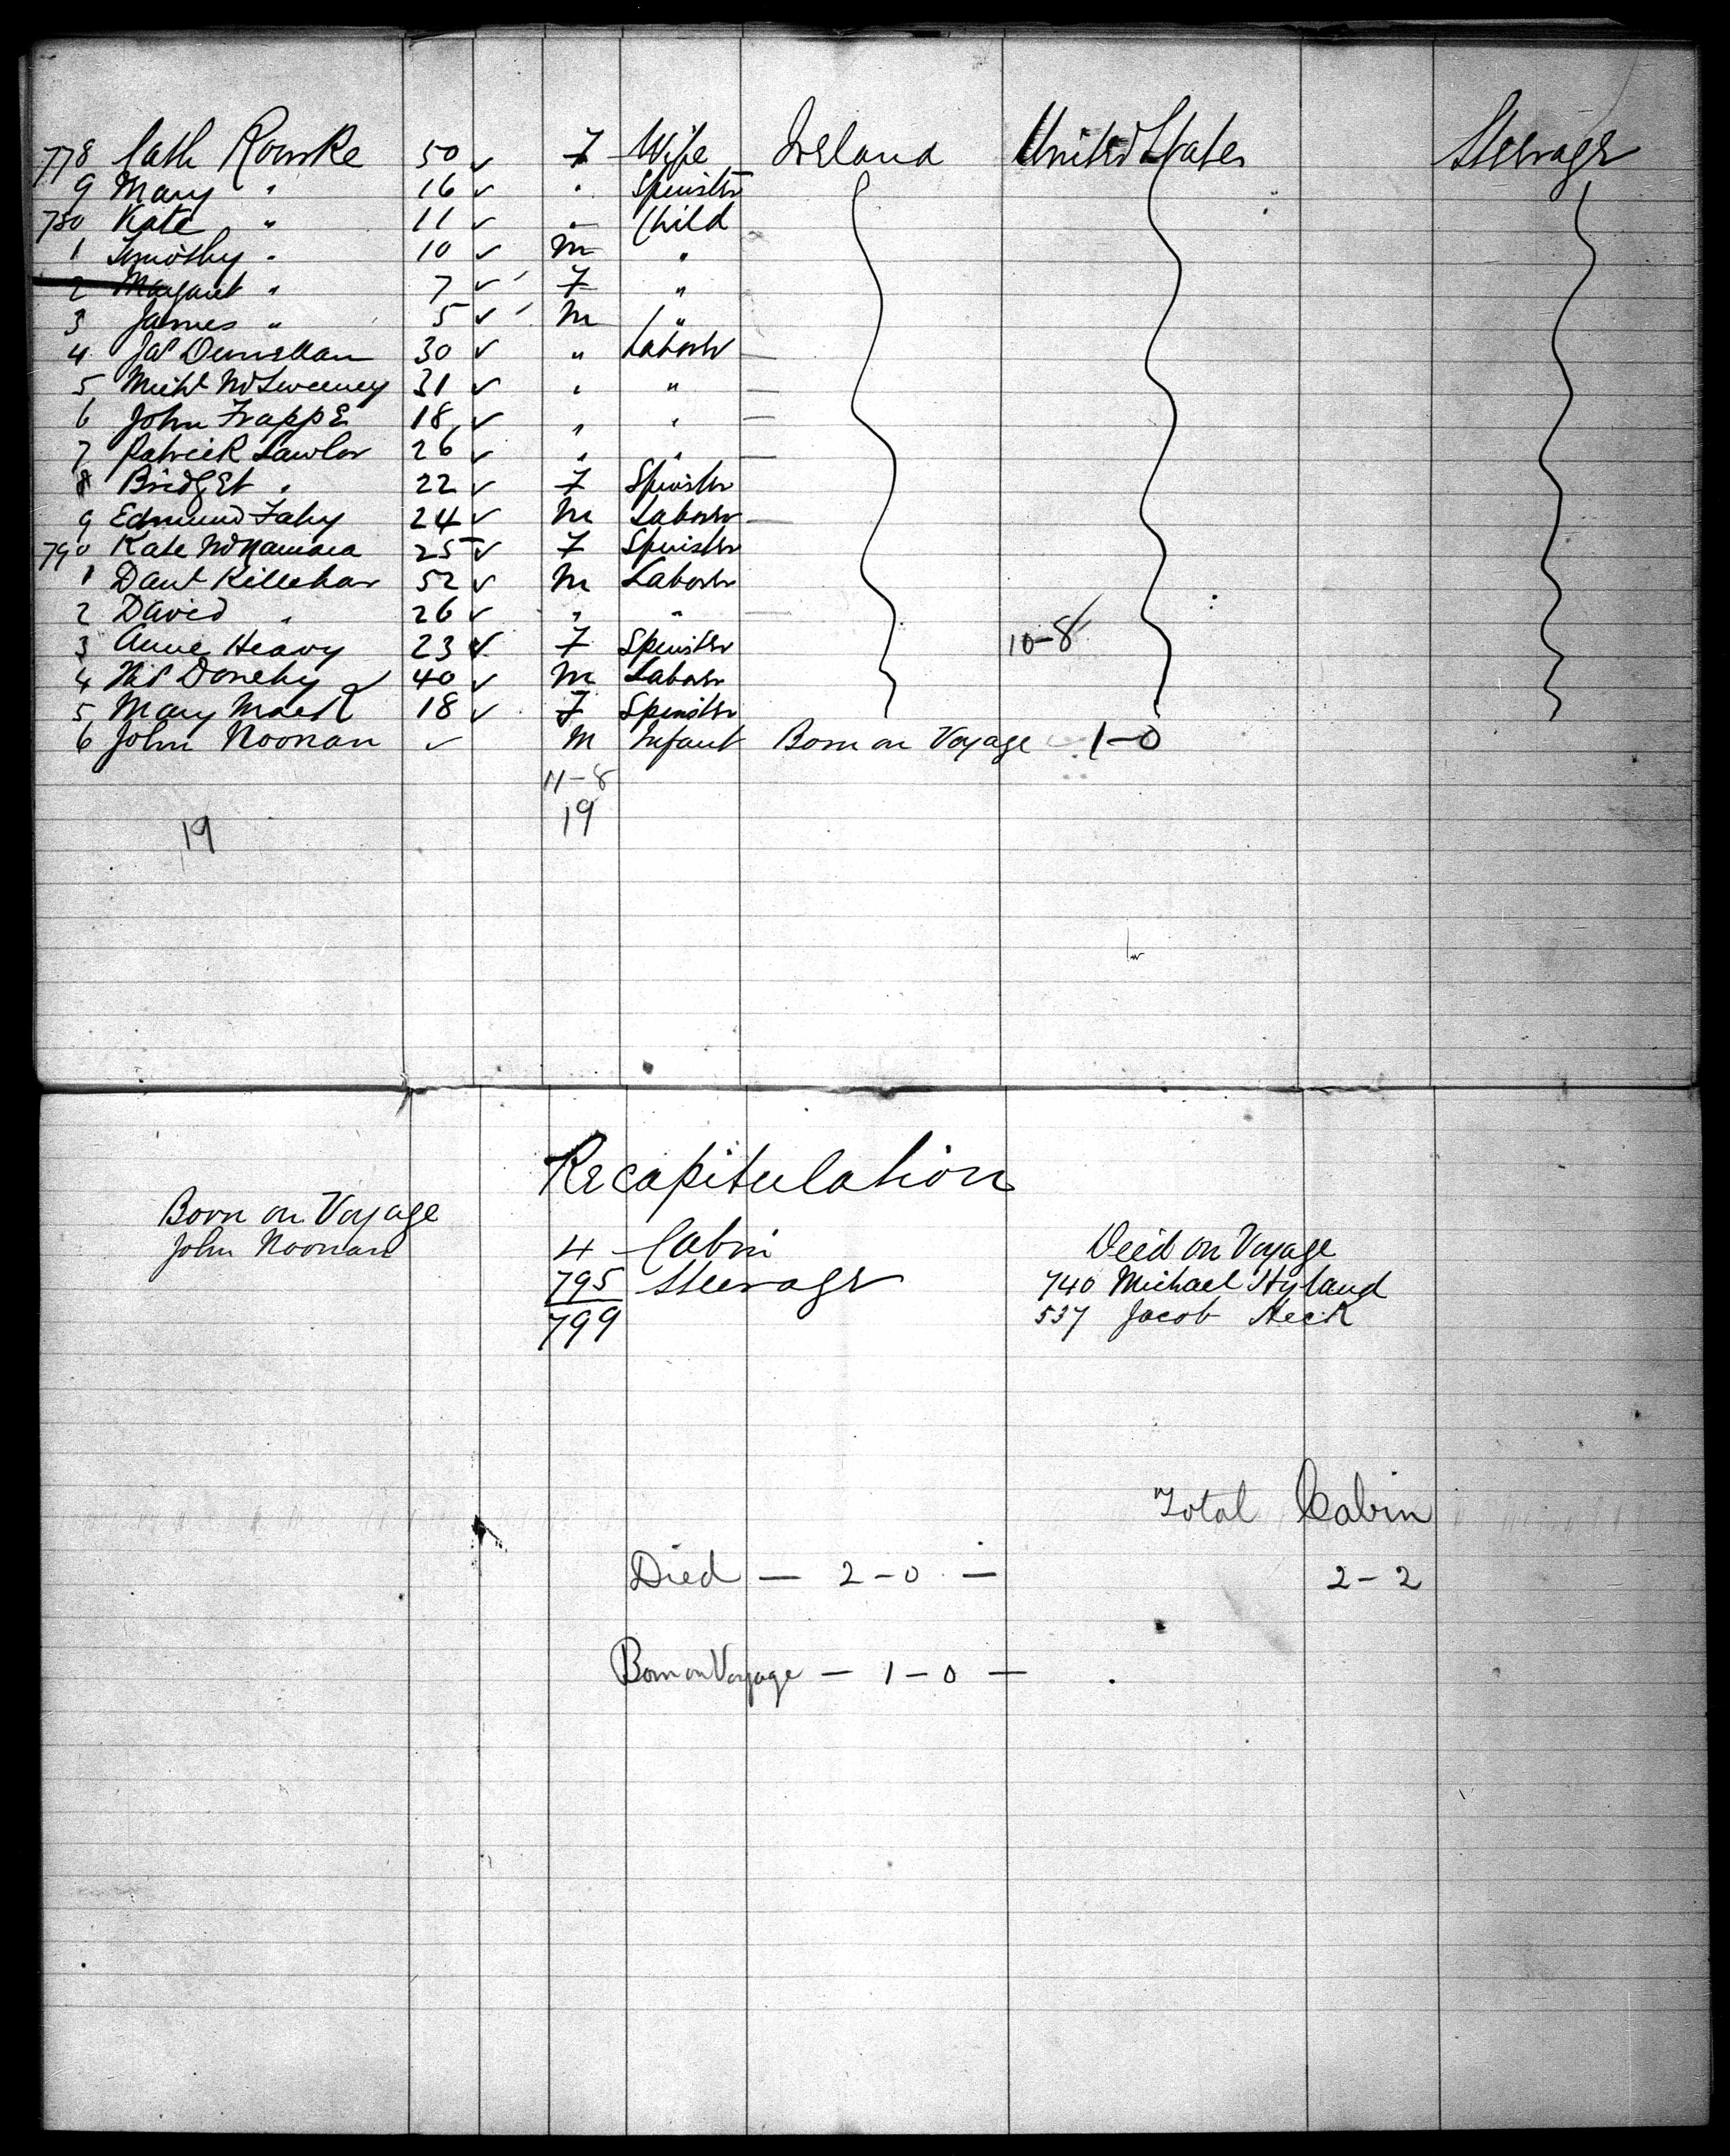 778 Cath Rourke 50 ✓ F Wife Ireland United States Steerage
9 Mary " 16 ✓ " Spinster
780 Kate " 11 ✓ " Child
1 Timothy " 10 ✓ M "
2 Margaret " 7 ✓ F "
3 James " 5 ✓ M "
4 Jas 30 ✓ " Laborer —
5 Michl McSweeney 31 ✓ " " —
6 John 18 ✓ " " —
7 Patrick Lawlor 26 ✓ " " —
8 Bridget " 22 ✓ F Spinster
9 Edmund Fahy 24 ✓ M Laborer —
790 Kate McNamara 25 ✓ F Spinster
1 Danl 52 ✓ M Laborer
2 David " 26 ✓ " " —
3 Anne Heavy 23 ✓ F Spinster 10-8
4 40 ✓ M Laborer
5 Mary 18 ✓ F Spinster
6 John Noonan ✓ M Infant Born on Voyage 1-0
11-8
19 19
Recapitulation
Born on Voyage
John Noonan
4 Cabin
795 Steerage
799
Died on Voyage
740 Michael Hyland
537 Jacob Heck
Total Cabin
Died — 2-0 — 2-2
Born on Voyage — 1-0 —